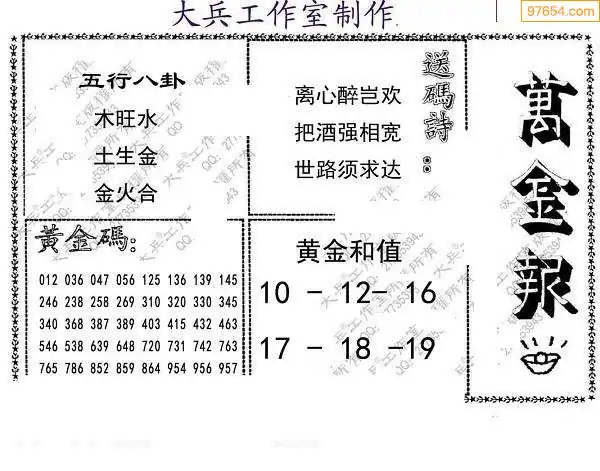 大兵工作室制作
97654.com
五行八卦
木旺水
土生金
金火合
送碼詩：
离心醉岂欢
把酒强相宽
世路须求达
萬金報
黃金碼：
012 036 047 056 125 136 139 145
246 238 258 269 310 320 330 345
340 368 387 389 403 415 432 463
546 538 639 648 720 731 742 763
765 786 852 859 864 954 956 957
黄金和值
10 - 12- 16
17 - 18 -19